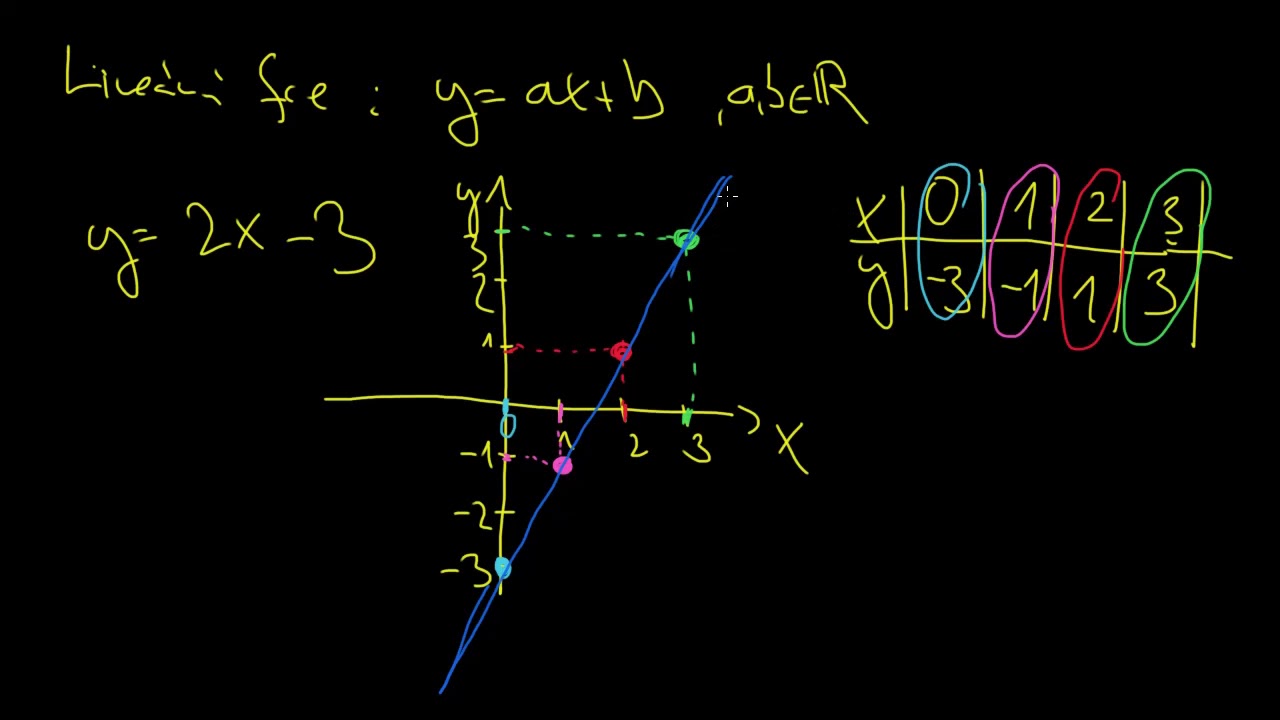 Lineární fce : y = ax + b , a, b ∈ ℝ
y = 2x - 3
y
3
2
1
0 1 2 3 x
-1
-2
-3
x | 0 | 1 | 2 | 3
y | -3 | -1 | 1 | 3